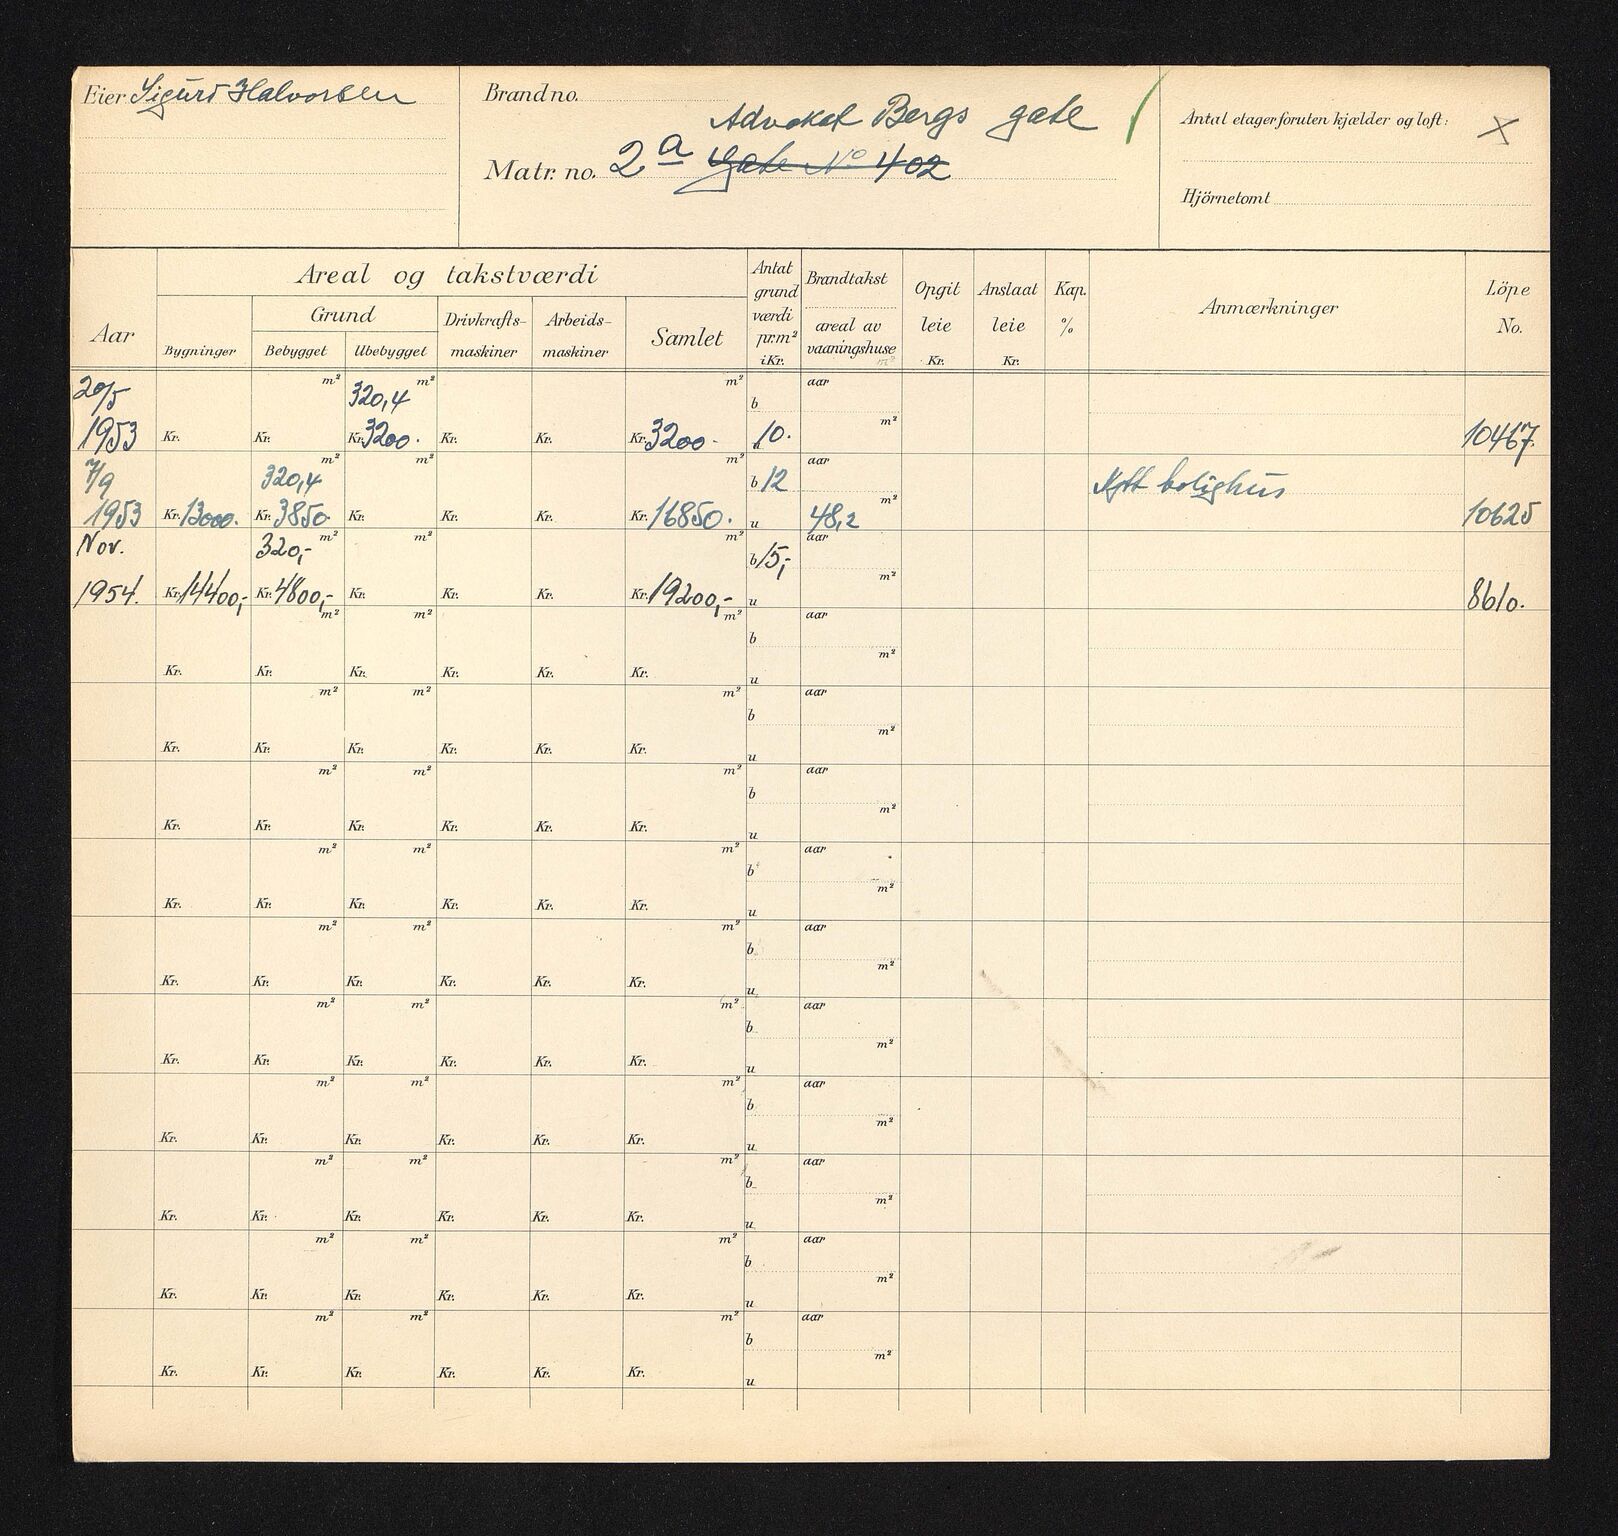 Eier Sigurd Halvorsen
Brand no.
Advokat Bergs gate
Matr. no. 2 a Gate No 402
Antal etager foruten kjælder og loft:
Hjörnetomt
Aar
Areal og takstværdi
Bygninger
Grund
Bebygget
Ubebygget
Drivkrafts-
maskiner
Arbeids-
maskiner
Samlet
Antat
grund
værdi
pr.m²
i Kr.
Brandtakst
areal av
vaaningshuse
m²
Opgit
leie
Kr.
Anslaat
leie
Kr.
Kap.
%
Anmærkninger
Löpe
No.
20/5 m² 320,4 m² m² b aar
1953 Kr. Kr. Kr. 3200. Kr. Kr. Kr. 3200- u 10. m² 10467.
7/9 320,4 m² m² m² b 12 aar Nytt bolighus
1953 Kr. 13000. Kr. 3850 Kr. Kr. Kr. Kr. 16850. u 48,2 m² 10625
Nov. 320,- m² m² m² b 15,- aar
1954. Kr. 14400,- Kr. 4800,- Kr. Kr. Kr. Kr. 19200,- u m² 8610.
m² m² m² b aar
Kr. Kr. Kr. Kr. Kr. Kr. u m²
m² m² m² b aar
Kr. Kr. Kr. Kr. Kr. Kr. u m²
m² m² m² b aar
Kr. Kr. Kr. Kr. Kr. Kr. u m²
m² m² m² b aar
Kr. Kr. Kr. Kr. Kr. Kr. u m²
m² m² m² b aar
Kr. Kr. Kr. Kr. Kr. Kr. u m²
m² m² m² b aar
Kr. Kr. Kr. Kr. Kr. Kr. u m²
m² m² m² b aar
Kr. Kr. Kr. Kr. Kr. Kr. u m²
m² m² m² b aar
Kr. Kr. Kr. Kr. Kr. Kr. u m²
m² m² m² b aar
Kr. Kr. Kr. Kr. Kr. Kr. u m²
m² m² m² b aar
Kr. Kr. Kr. Kr. Kr. Kr. u m²